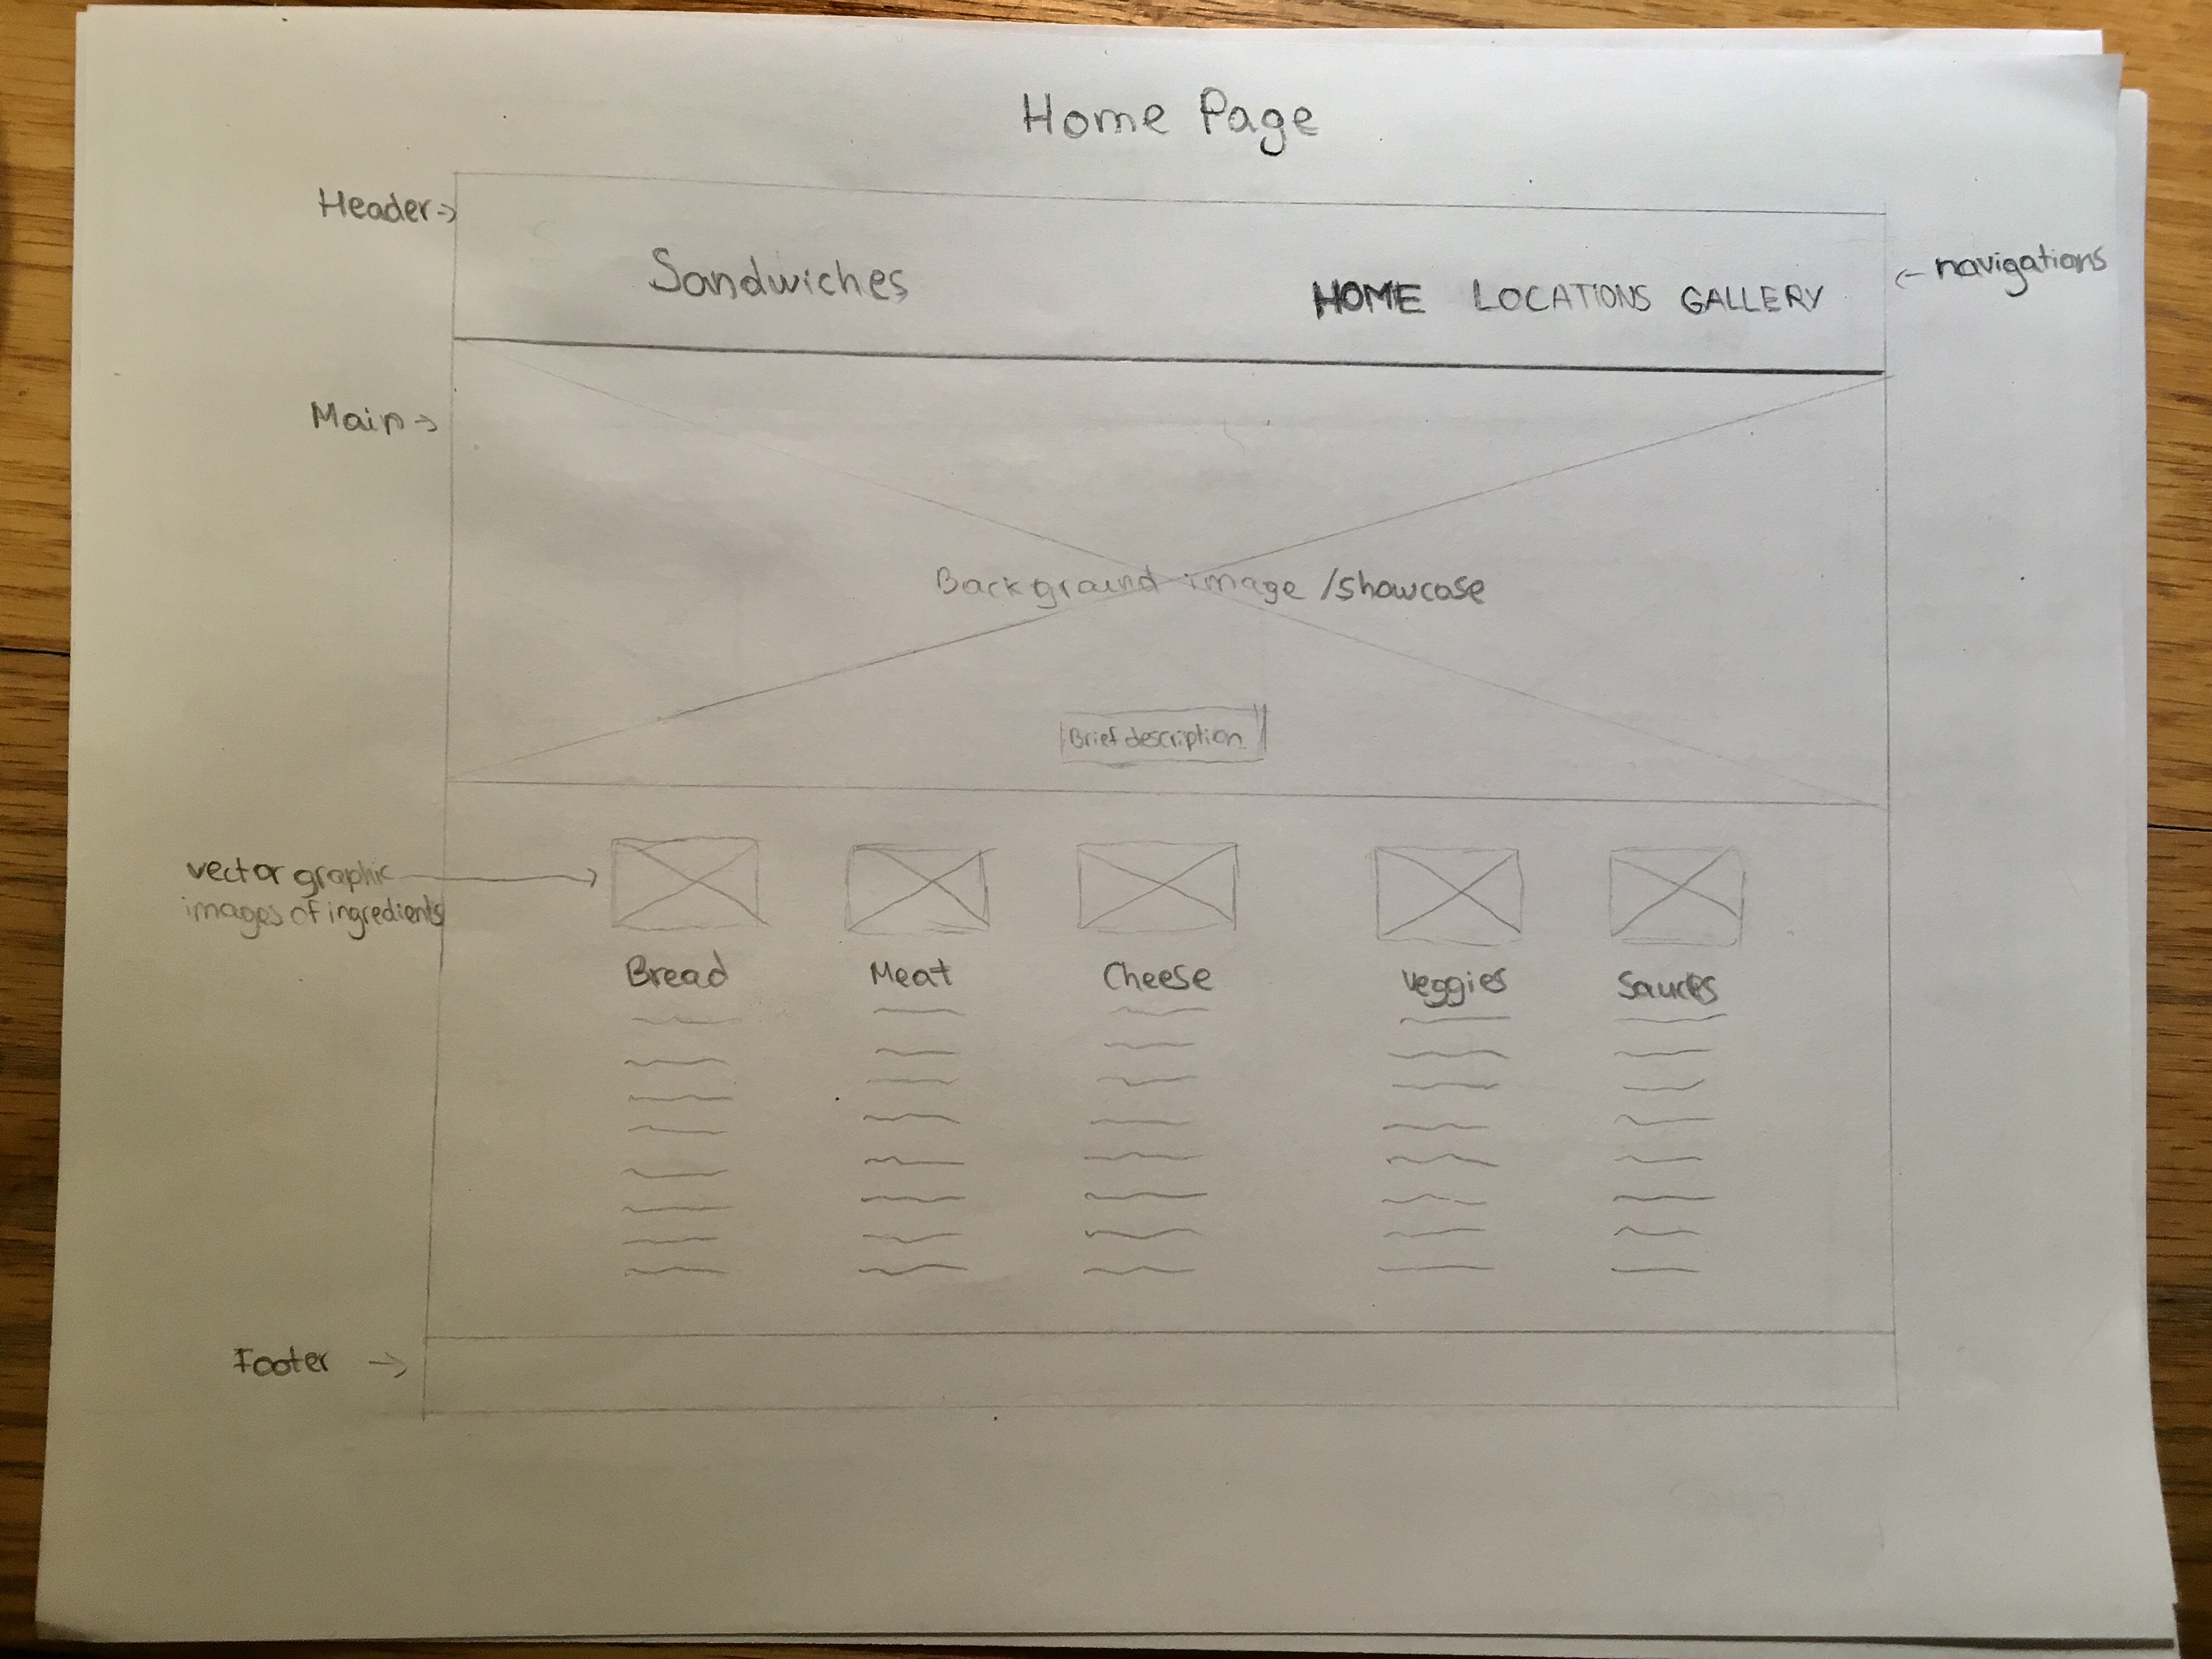 Home Page
Header
Sandwiches
HOME LOCATIONS GALLERY
navigations
Main
Background image /showcase
Brief description
vector graphic
images of ingredients
Bread Meat Cheese Veggies Sauces
Footer